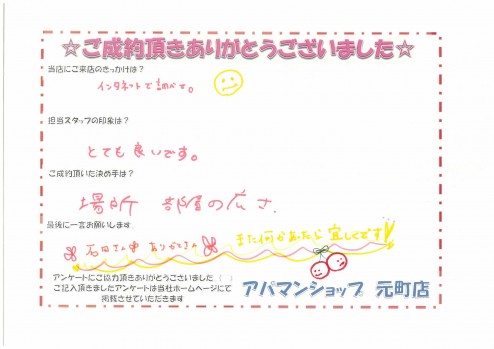 ☆ご成約頂きありがとうございました☆
当店にご来店のきっかけは？
インタネットで調べて。
担当スタッフの印象は？
とても良いです。
ご成約頂いた決め手は？
場所 部屋の広さ.
最後に一言お願いします
石田さん
ありがとうございます
また何かあったら宜しくです
アンケートにご協力頂きありがとうございました（ ）
ご記入頂きましたアンケートは当社ホームページにて
掲載させていただきます
アパマンショップ 元町店